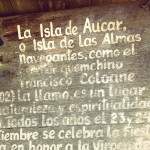 La Isla de Aucar,
o Isla de las Almas
Navegantes, como el
escritor quemchino
Francisco Coloane
la llamo, es un lugar
naturaleza y espiritualidad
todos los años el 23 y 24
tiembre se celebra la Fiesta
en honor a la virgen de